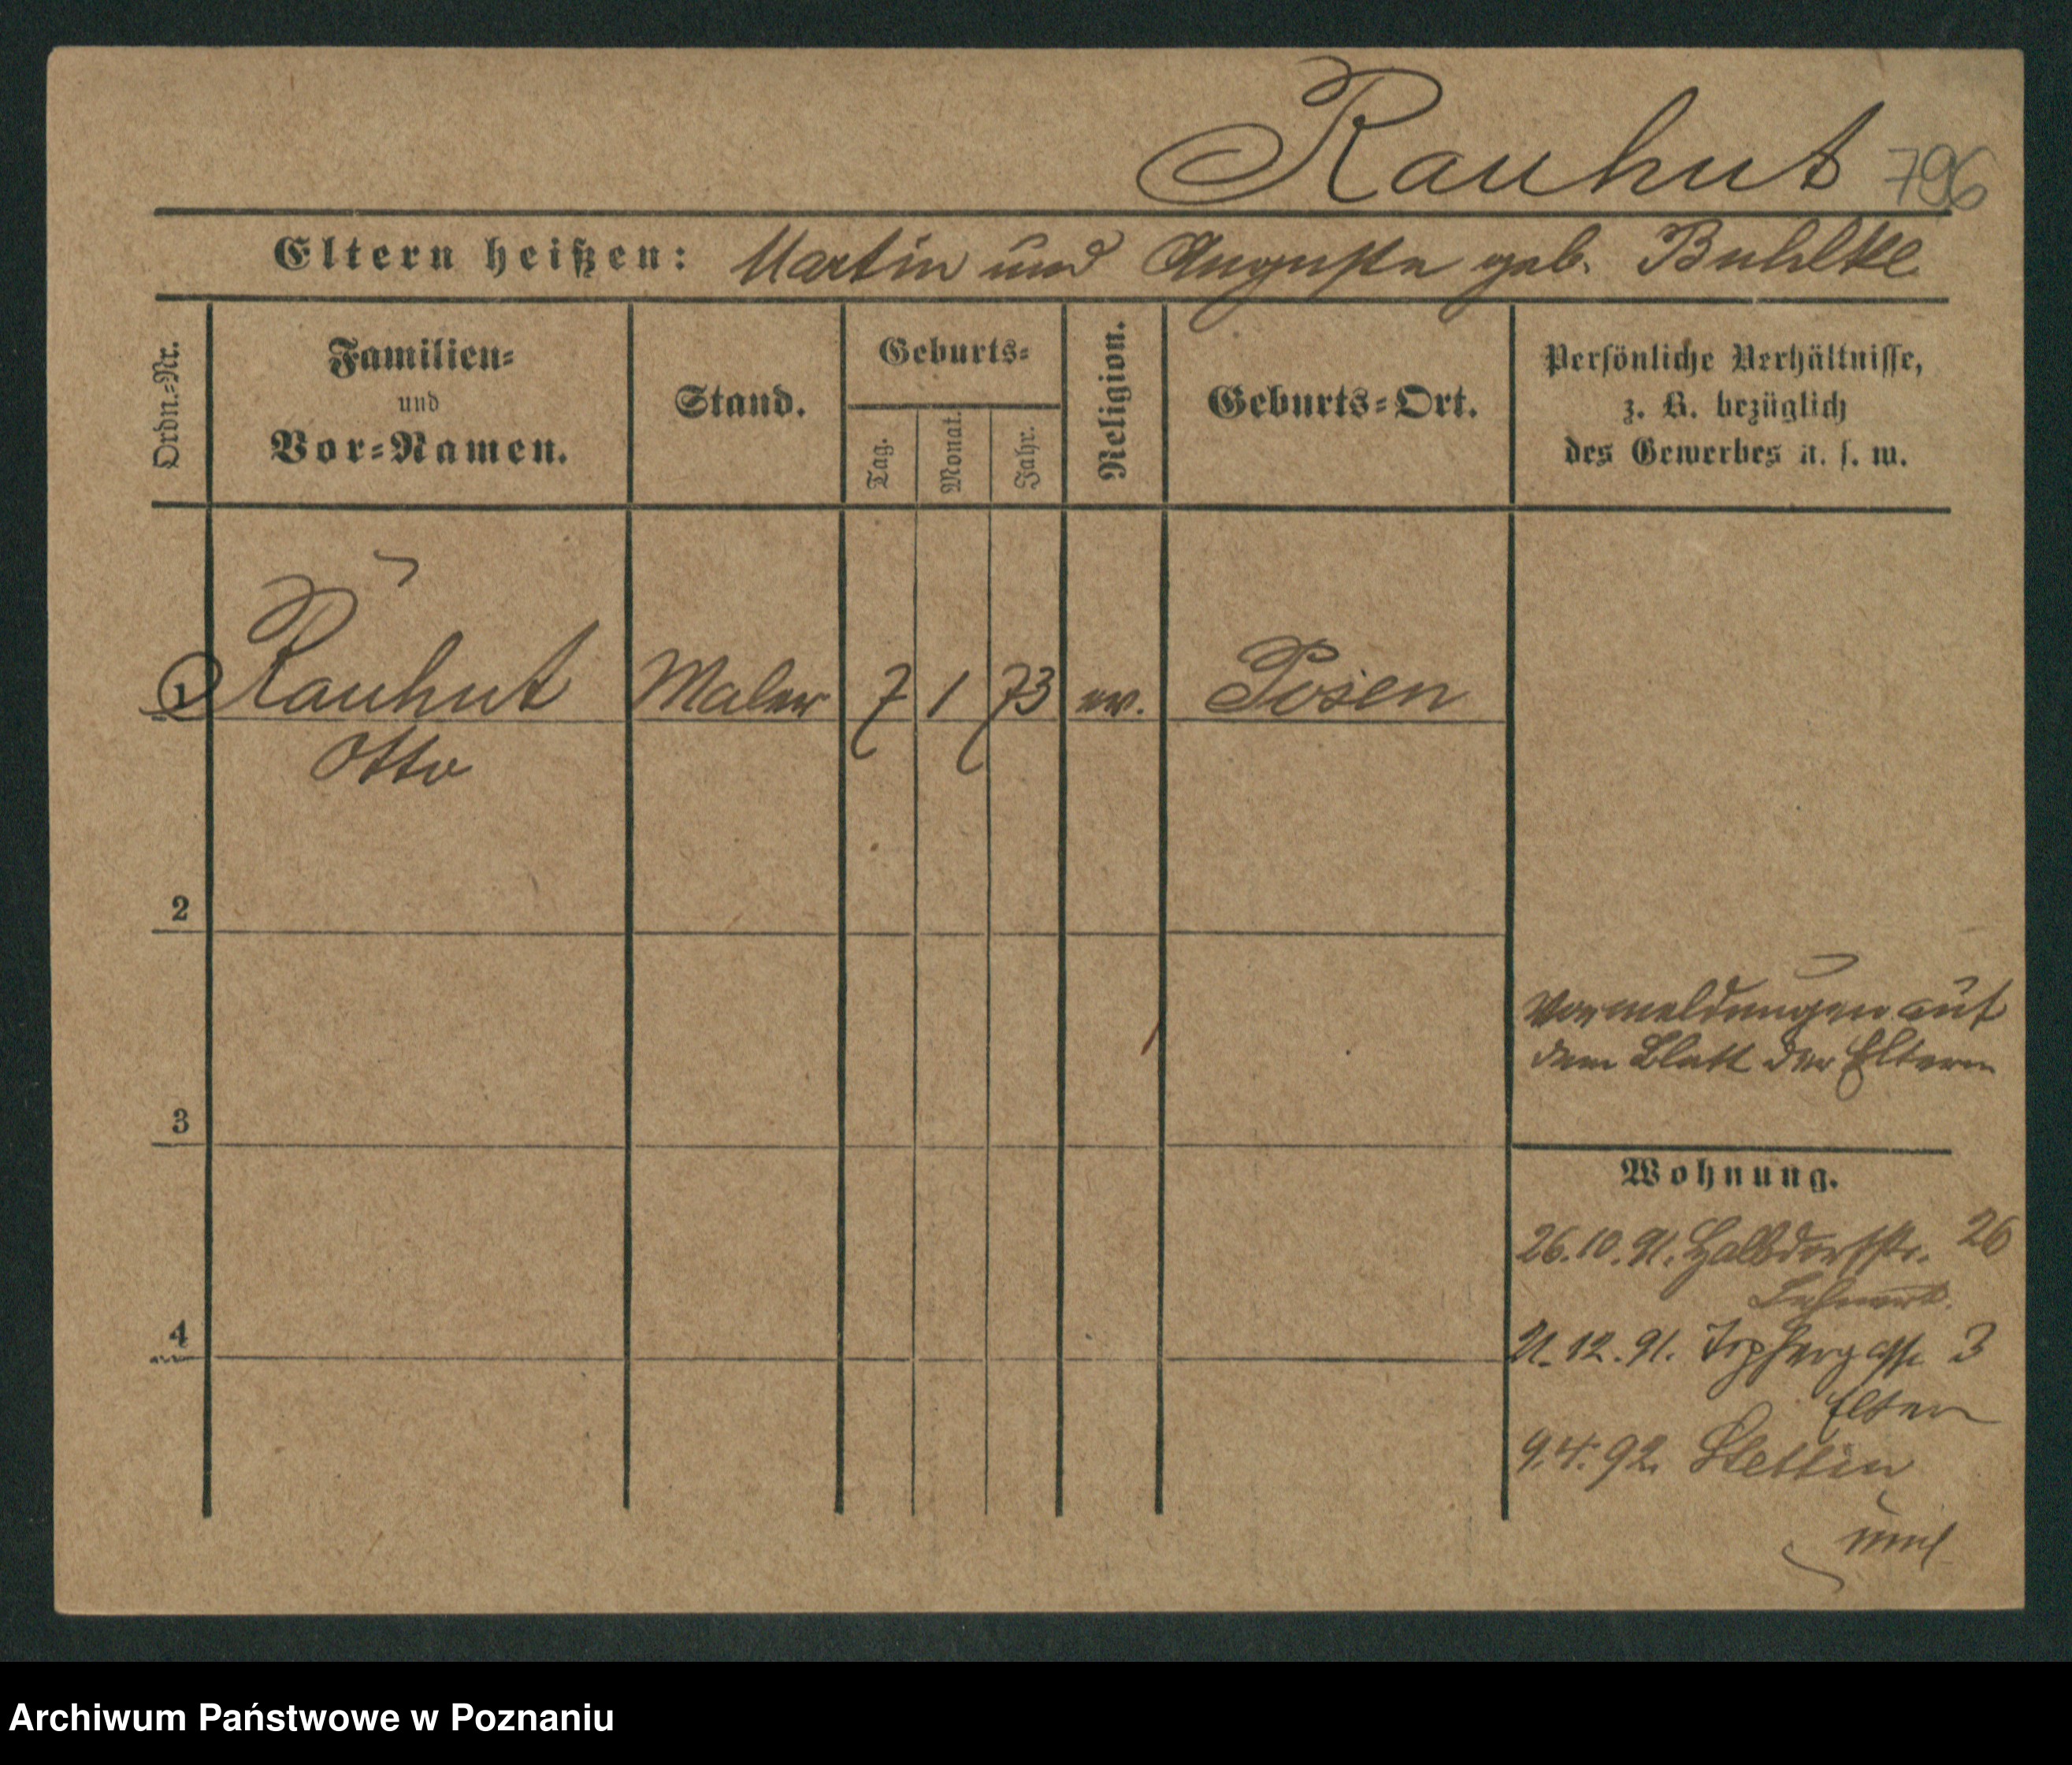 Rauhut 796
Eltern heißen: Martin und Auguste geb. Buhlke
Ordn.-Nr.
Familien-
und
Vor-Namen.
Stand.
Geburts-
Tag.
Monat.
Jahr.
Religion.
Geburts-Ort.
Persönliche Verhältnisse,
z. B. bezüglich
des Gewerbes u. s. w.
1 Rauhut Maler 7 1 73 ev. Posen
Otto
2
3
4
Vormeldungen auf
dem Blatt der Eltern
Wohnung.
26.10.91. Halbdorfstr. 26
21.12.91. Töpfergasse 3
Eltern
9.4.92. Stettin
Archiwum Państwowe w Poznaniu